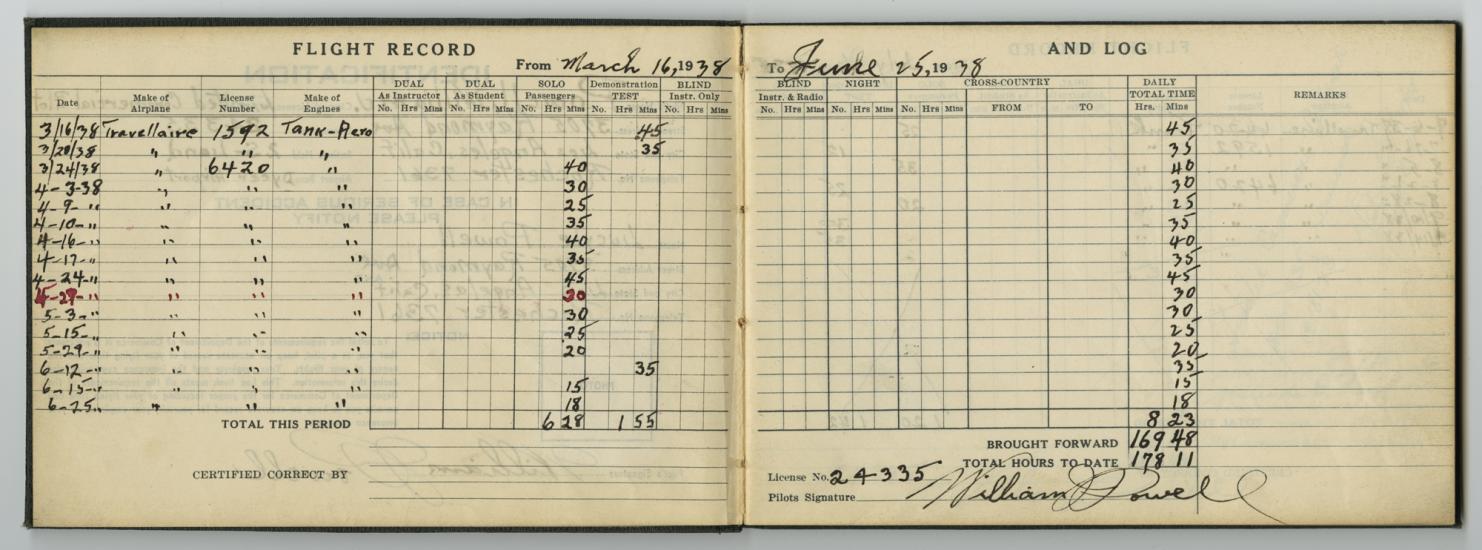 FLIGHT RECORD
From March 16, 1938
DUAL As Instructor DUAL As Student SOLO Passengers Demonstration TEST BLIND Instr. Only
Date Make of Airplane License Number Make of Engines No. Hrs Mins No. Hrs Mins No. Hrs Mins No. Hrs Mins No. Hrs Mins
3/16/38 Travellaire 1592 Tank-Aero 45
3/20/38 " " " 35
3/24/38 " 6420 " 40
4-3-38 " " " 30
4-9-" " " " 25
4-10-" " " " 35
4-16-" " " " 40
4-17-" " " " 35
4-24-" " " " 45
4-29-" " " " 30
5-3-" " " " 30
5-15-" " " " 25
5-29-" " " " 20
6-12-" " " " 35
6-15-" " " " 15
6-25" " " " 18
TOTAL THIS PERIOD 6 28 1 55
CERTIFIED CORRECT BY
AND LOG
To June 25, 1938
BLIND Instr. & Radio NIGHT CROSS-COUNTRY DAILY TOTAL TIME REMARKS
No. Hrs Mins No. Hrs Mins No. Hrs Mins FROM TO Hrs. Mins
45
35
40
30
25
35
40
35
45
30
30
25
20
35
15
18
8 23
BROUGHT FORWARD 169 48
TOTAL HOURS TO DATE 178 11
License No. 24335
Pilots Signature William Powell